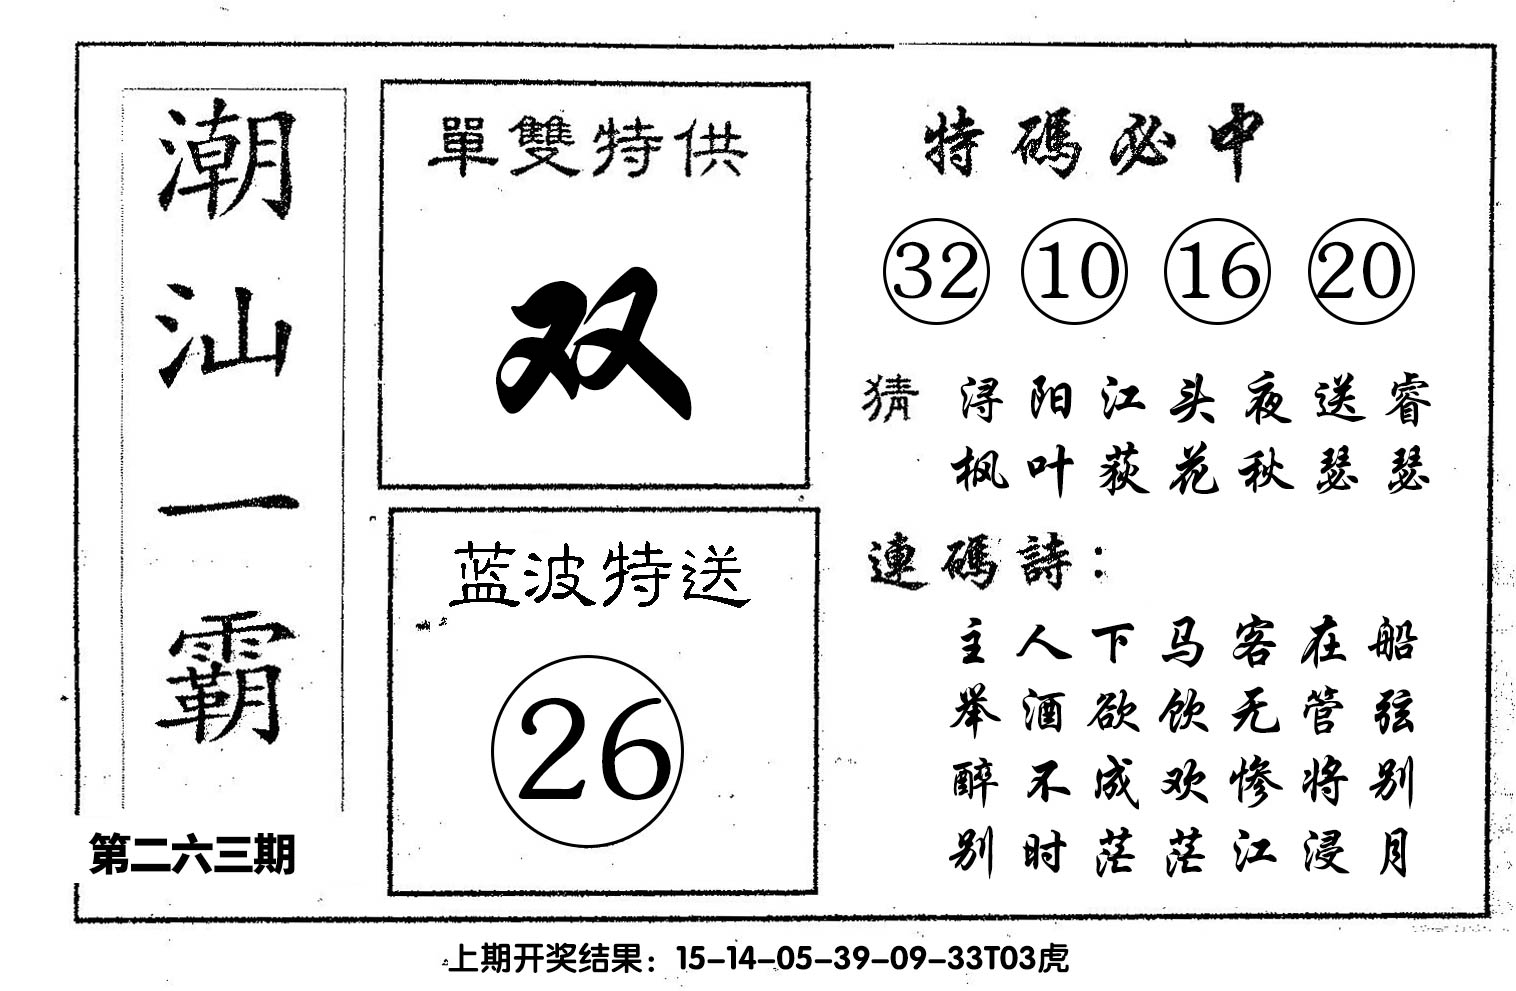 潮汕一霸
第二六三期
單雙特供
双
蓝波特送
26
特碼必中
32 10 16 20
猜 浔阳江头夜送睿
枫叶荻花秋瑟瑟
連碼詩：
主人下马客在船
举酒欲饮无管弦
醉不成欢惨将别
别时茫茫江浸月
上期开奖结果：15-14-05-39-09-33T03虎